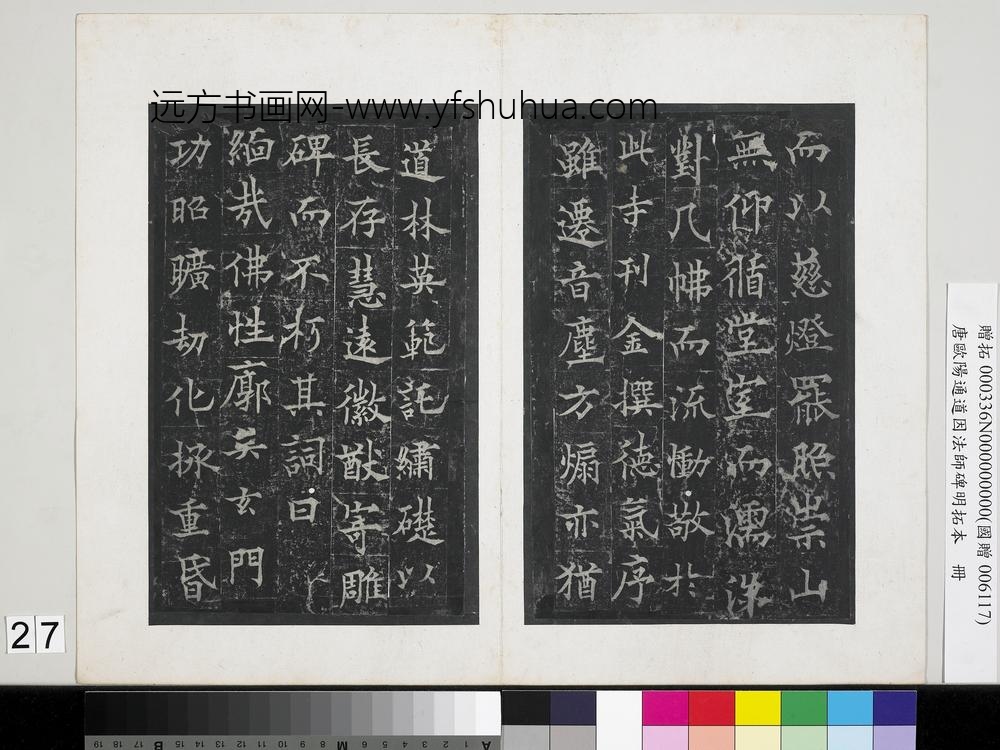 远方书画网-www.yfshuhua.com
而以慈燈罷照崇山
無仰循堂室而濡洟
對几怫而流慟敬於
此寺刊金撰德氣序
雖遷音塵方煽亦猶
道林英範託繡礎以
長存慧遠徽猷寄雕
碑而不朽其詞曰
緬哉佛性廓矣玄門
功昭曠劫化拯重昏
贈拓 000336N000000000(國贈 006117)
唐歐陽通道因法師碑明拓本 冊
27
19 18 17 16 15 14 13 12 11 10 9 8 7 6 5 4 3 2 1
B M A